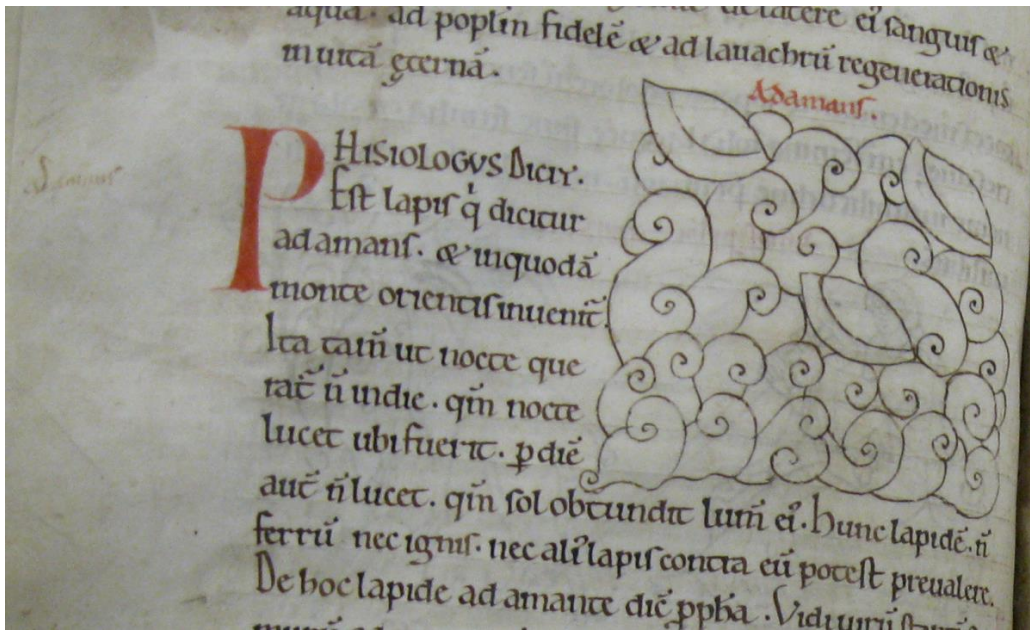 aqua. ad poplm̄ fidelē & ad lauachrū regenerationis
in uitā ęternā.
Adamans.
PHISIOLOGVS DICIT.
Est lapis q̓ dicitur
adamans. & in quodā
monte orientis inuenit̄.
Ita tam̄ ut nocte que
rat̄ n̄ in die. qm̄ nocte
lucet ubi fuerit. ꝑ diē
aut̄ n̄ lucet. qm̄ sol obtundit lum̄ ei᾽. hunc lapidē. n̄
ferrū nec ignis. nec ali᾽ lapis contra eū potest preualere.
De hoc lapide adamante dic̄ ꝓph̄a. Vidi uirū